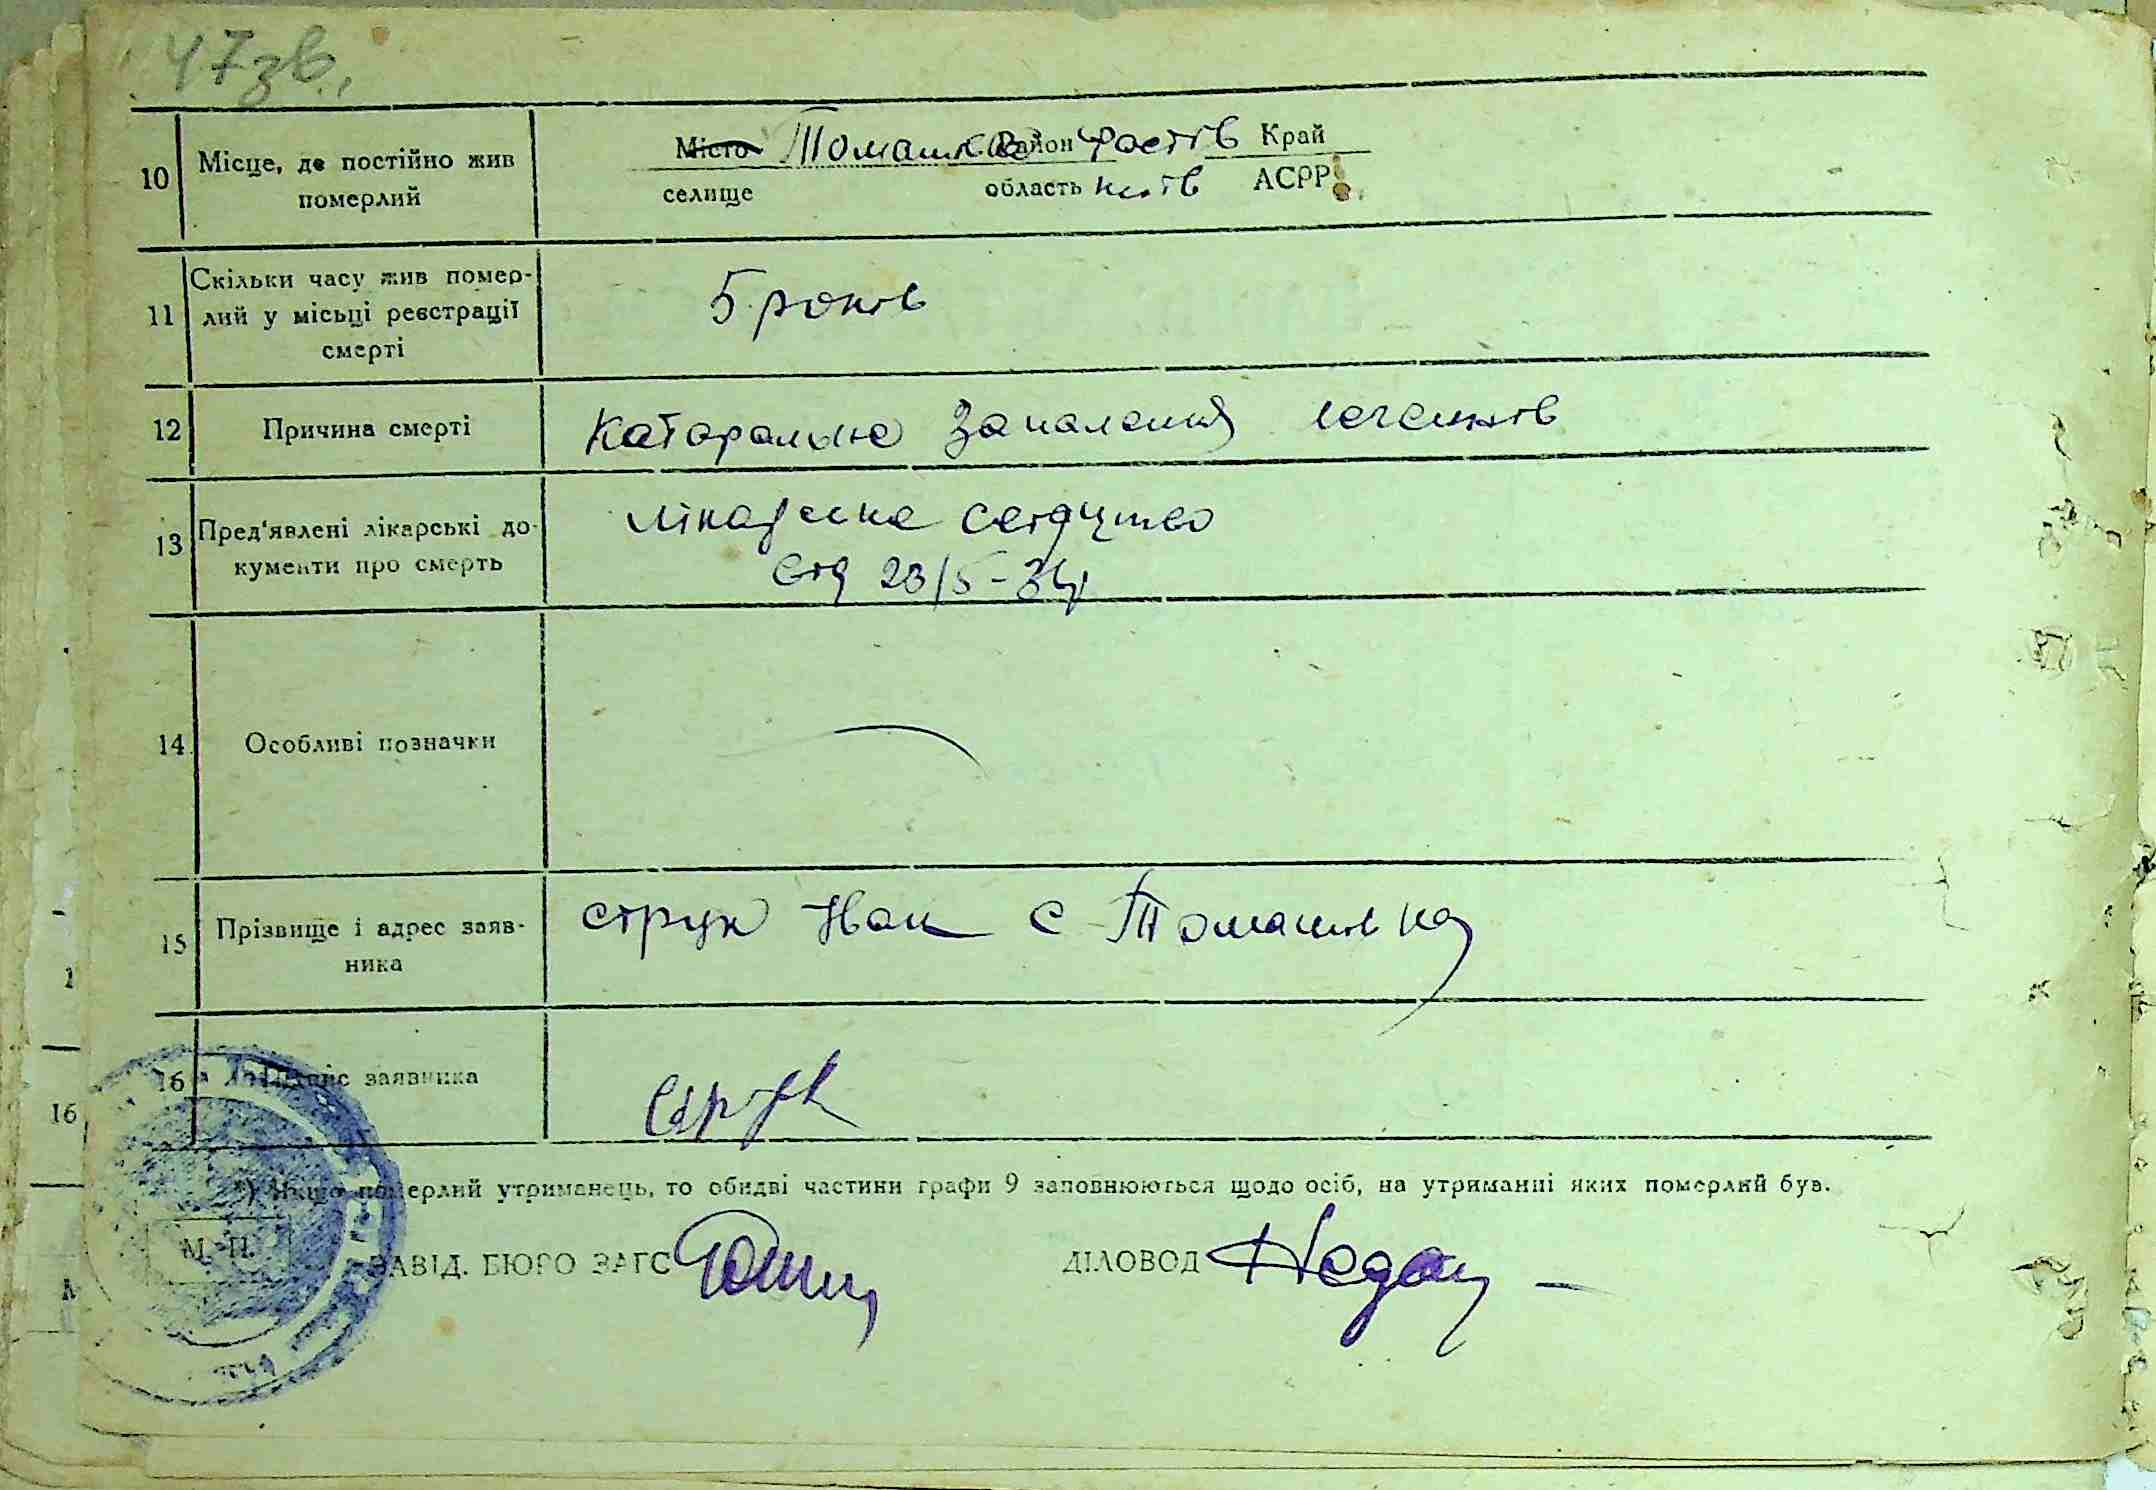 47зв.
10 Місце, де постійно жив померлий
Місто Томашівка Район Фастів Край
селище область Київ АСРР
11 Скільки часу жив помер-
лий у місьці реєстрації
смерті
5 років
12 Причина смерті
Катаральне запалення легенів
13 Пред'явлені лікарські до-
кументи про смерть
лікарське свідуцтво
від 23/5-34р
14 Особливі позначки
15 Прізвище і адрес заяв-
ника
Струк Іван с Томашівка
16 Підпис заявника
Струк
16
*) Якщо померлий утриманець, то обидві частини графи 9 заповнюються щодо осіб, на утриманні яких померлий був.
М. П.
ЗАВІД. БЮРО ЗАГС
ДІЛОВОД